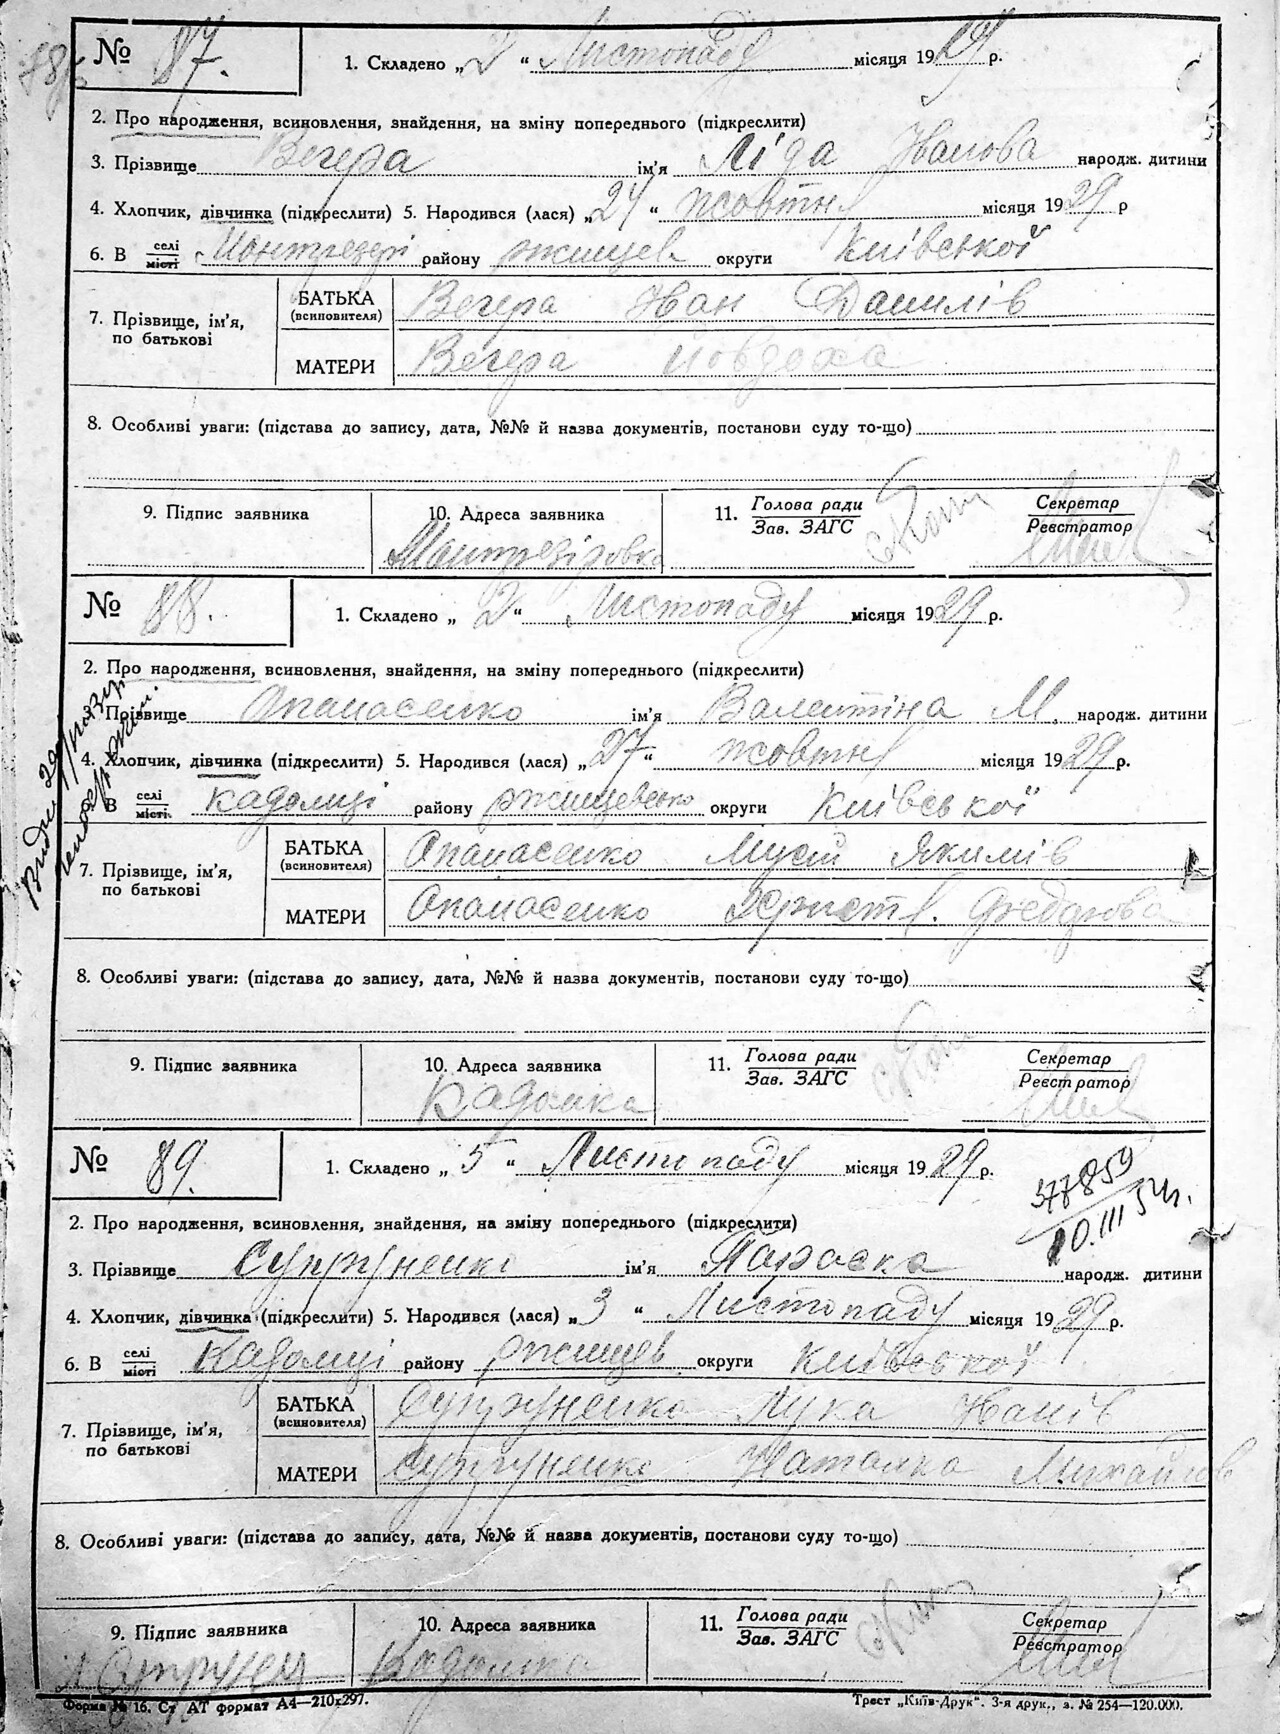 № 87. 1. Складено „2“ Листопаду місяця 1929 р.
2. Про народження, всиновлення, знайдення, на зміну попереднього (підкреслити)
3. Прізвище Вечера ім'я Ліда Іванова народж. дитини
4. Хлопчик, дівчинка (підкреслити) 5. Народився (лася) „24“ жовтня місяця 1929 р
6. В селі місті району ржищев. округи Київської
7. Прізвище, ім'я, по батькові БАТЬКА (всиновителя) Вечера Іван Данилів
МАТЕРИ Вечера Йовдоха
8. Особливі уваги: (підстава до запису, дата, №№ й назва документів, постанови суду то-що)
9. Підпис заявника 10. Адреса заявника 11. Голова ради Зав. ЗАГС Секретар Реєстратор
№ 88. 1. Складено „2“ Листопаду місяця 1929 р.
2. Про народження, всиновлення, знайдення, на зміну попереднього (підкреслити)
3. Прізвище Опанасенко ім'я Валентіна М. народж. дитини
4. Хлопчик, дівчинка (підкреслити) 5. Народився (лася) „27“ жовтня місяця 1929 р.
В селі місті Кадомці району ржищевсько округи Київської
7. Прізвище, ім'я, по батькові БАТЬКА (всиновителя) Опанасенко Мусій Якимів
МАТЕРИ Опанасенко
8. Особливі уваги: (підстава до запису, дата, №№ й назва документів, постанови суду то-що)
9. Підпис заявника 10. Адреса заявника 11. Голова ради Зав. ЗАГС Секретар Реєстратор
Кадомка
№ 89. 1. Складено „5“ Листопаду місяця 1929 р.
377859
10.III 54г.
2. Про народження, всиновлення, знайдення, на зміну попереднього (підкреслити)
3. Прізвище Супруненко ім'я Параска народж. дитини
4. Хлопчик, дівчинка (підкреслити) 5. Народився (лася) „3“ Листопаду місяця 1929 р.
6. В селі місті Кадомці району ржищев. округи Київської
7. Прізвище, ім'я, по батькові БАТЬКА (всиновителя) Супруненко Лука Іванів
МАТЕРИ Супруненко Наталка Михайлов
8. Особливі уваги: (підстава до запису, дата, №№ й назва документів, постанови суду то-що)
9. Підпис заявника 10. Адреса заявника 11. Голова ради Зав. ЗАГС Секретар Реєстратор
Кадомка
Форма № 16. Ст АТ формат А4—210х297. Трест „Київ-Друк“. 3-я друк., з. № 254—120.000.